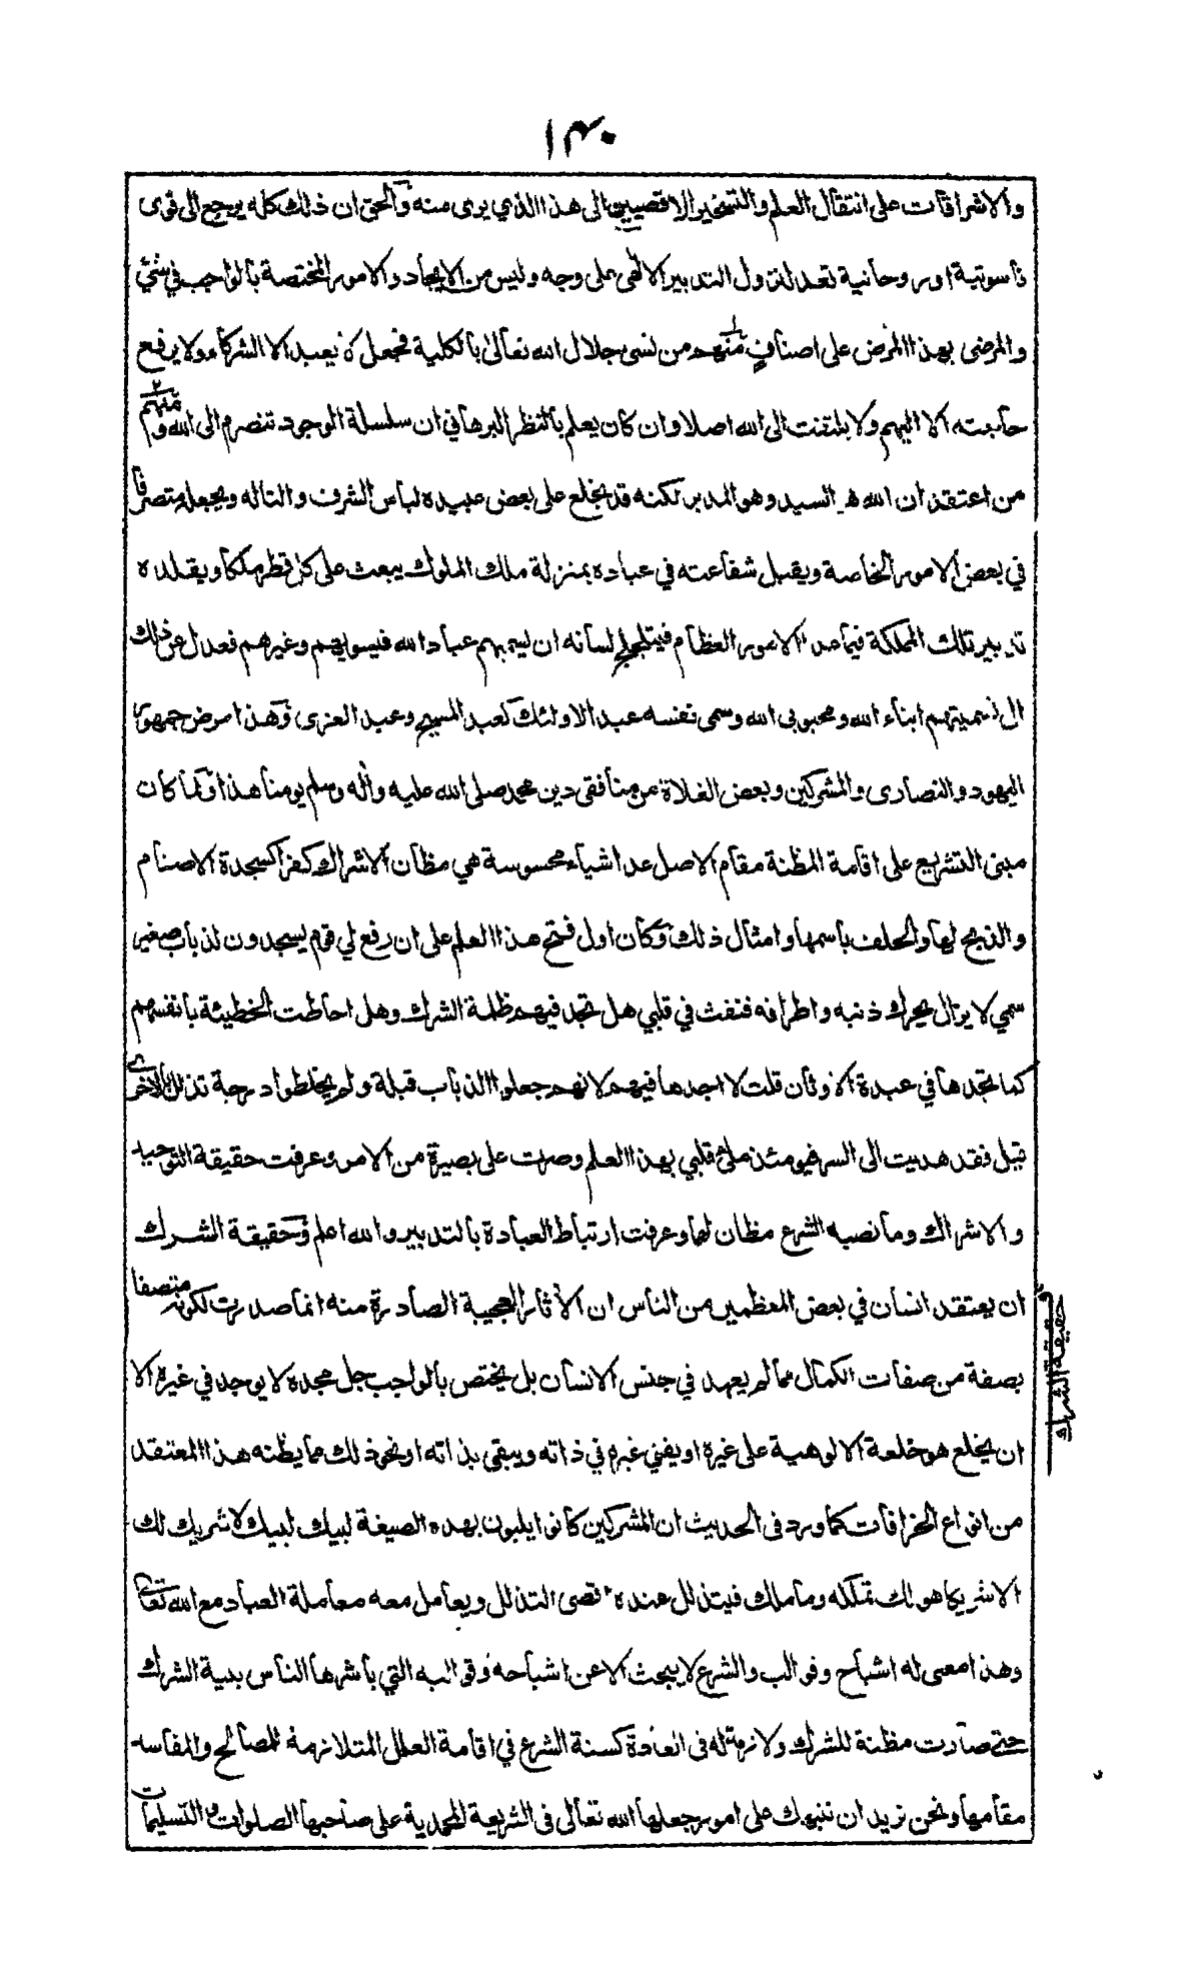 ١٣٠
والاشراقات على انتقال العلم والتسخير الاقصيين الى هذا الذي يرى منه والحق ان ذلك كله يرجع الى قوى
ناسوتية او روحانية تعد لنزول التدبير الالهى على وجه وليس من الايجاد والامور المختصة بالواجب في شئ
والمرضى بهذا المرض على اصناف منهم من نسى جلال الله تعالى بالكلية فجعل لا يعبد الا الشركاء ولا يرفع
حاجته الا اليهم ولا يلتفت الى الله اصلا وان كان يعلم بالنظر البرهاني ان سلسلة الوجود تنصرم الى الله ومنهم
من اعتقد ان الله هو السيد وهو المدبر لكنه قد يخلع على بعض عبيده لباس الشرف والتاله ويجعله متصرفا
في بعض الامور الخاصة ويقبل شفاعته في عباده بمنزلة ملك الملوك يبعث على كل قطر ملكا ويقلده
تدبير تلك المملكة فيما عدا الامور العظام فيتلجلج لسانه ان يسميهم عباد الله فيسويهم وغيرهم فعدل عن ذلك
الى تسميتهم ابناء الله ومحبوبى الله وسمى نفسه عبد الاولئك كعبد المسيح وعبد العزى وهذا مرض جمهور
اليهود والنصارى والمشركين وبعض الغلاة من منافقى دين محمد صلى الله عليه وأله وسلم يومنا هذا ولما كان
مبنى التشريع على اقامة المظنة مقام الاصل عد اشياء محسوسة هي مظان الاشراك كفرا كسجدة الاصنام
والذبح لها والحلف باسمها وامثال ذلك وكان اول فتح هذا العلم على ان رفع لي قوم يسجدون لذباب صغير
سمي لا يزال يحرك ذنبه واطرافه فنفث في قلبي هل تجد فيهم ظلمة الشرك وهل احاطت الخطيئة بانفسهم
كما تجدها في عبدة الاوثان قلت لا اجدها فيهم لانهم جعلوا الذباب قبلة ولم يخلطوا درجة تذلل بالاخرى
قيل فقد هديت الى السر فيومئذ ملئ قلبي بهذا العلم وصرت على بصيرة من الامر وعرفت حقيقة التوحيد
والاشراك وما نصبه الشرع مظان لهما وعرفت ارتباط العبادة بالتدبير والله اعلم وحقيقة الشرك
ان يعتقد انسان في بعض المعظمين من الناس ان الأثار العجيبة الصادرة منه انما صدرت لكونه متصفا
بصفة من صفات الكمال مما لم يعهد في جنس الانسان بل يختص بالواجب جل مجده لا يوجد في غيره الا
ان يخلع هو خلعة الالوهية على غيره او يفنى غيره في ذاته ويبقى بذاته او نحو ذلك مما يظنه هذا المعتقد
من انواع الخرافات كما ورد فى الحديث ان المشركين كانوا يلبون بهذه الصيغة لبيك لبيك لا شريك لك
الا شريكا هو لك تملكه وما ملك فيتذلل عنده اقصى التذلل ويعامل معه معاملة العباد مع الله تعالى
وهذا معنى له اشباح وقوالب والشرع لا يبحث الا عن اشباحه وقوالبه التي باشرها الناس بنية الشرك
حتى صارت مظنة للشرك ولازمة له فى العادة كسنة الشرع في اقامة العلل المتلازمة للمصالح والمفاسد
مقامها ونحن نريد ان ننبهك على امور جعلها الله تعالى فى الشريعة المحمدية على صاحبها الصلوات والتسليمات
حقيقة الشرك